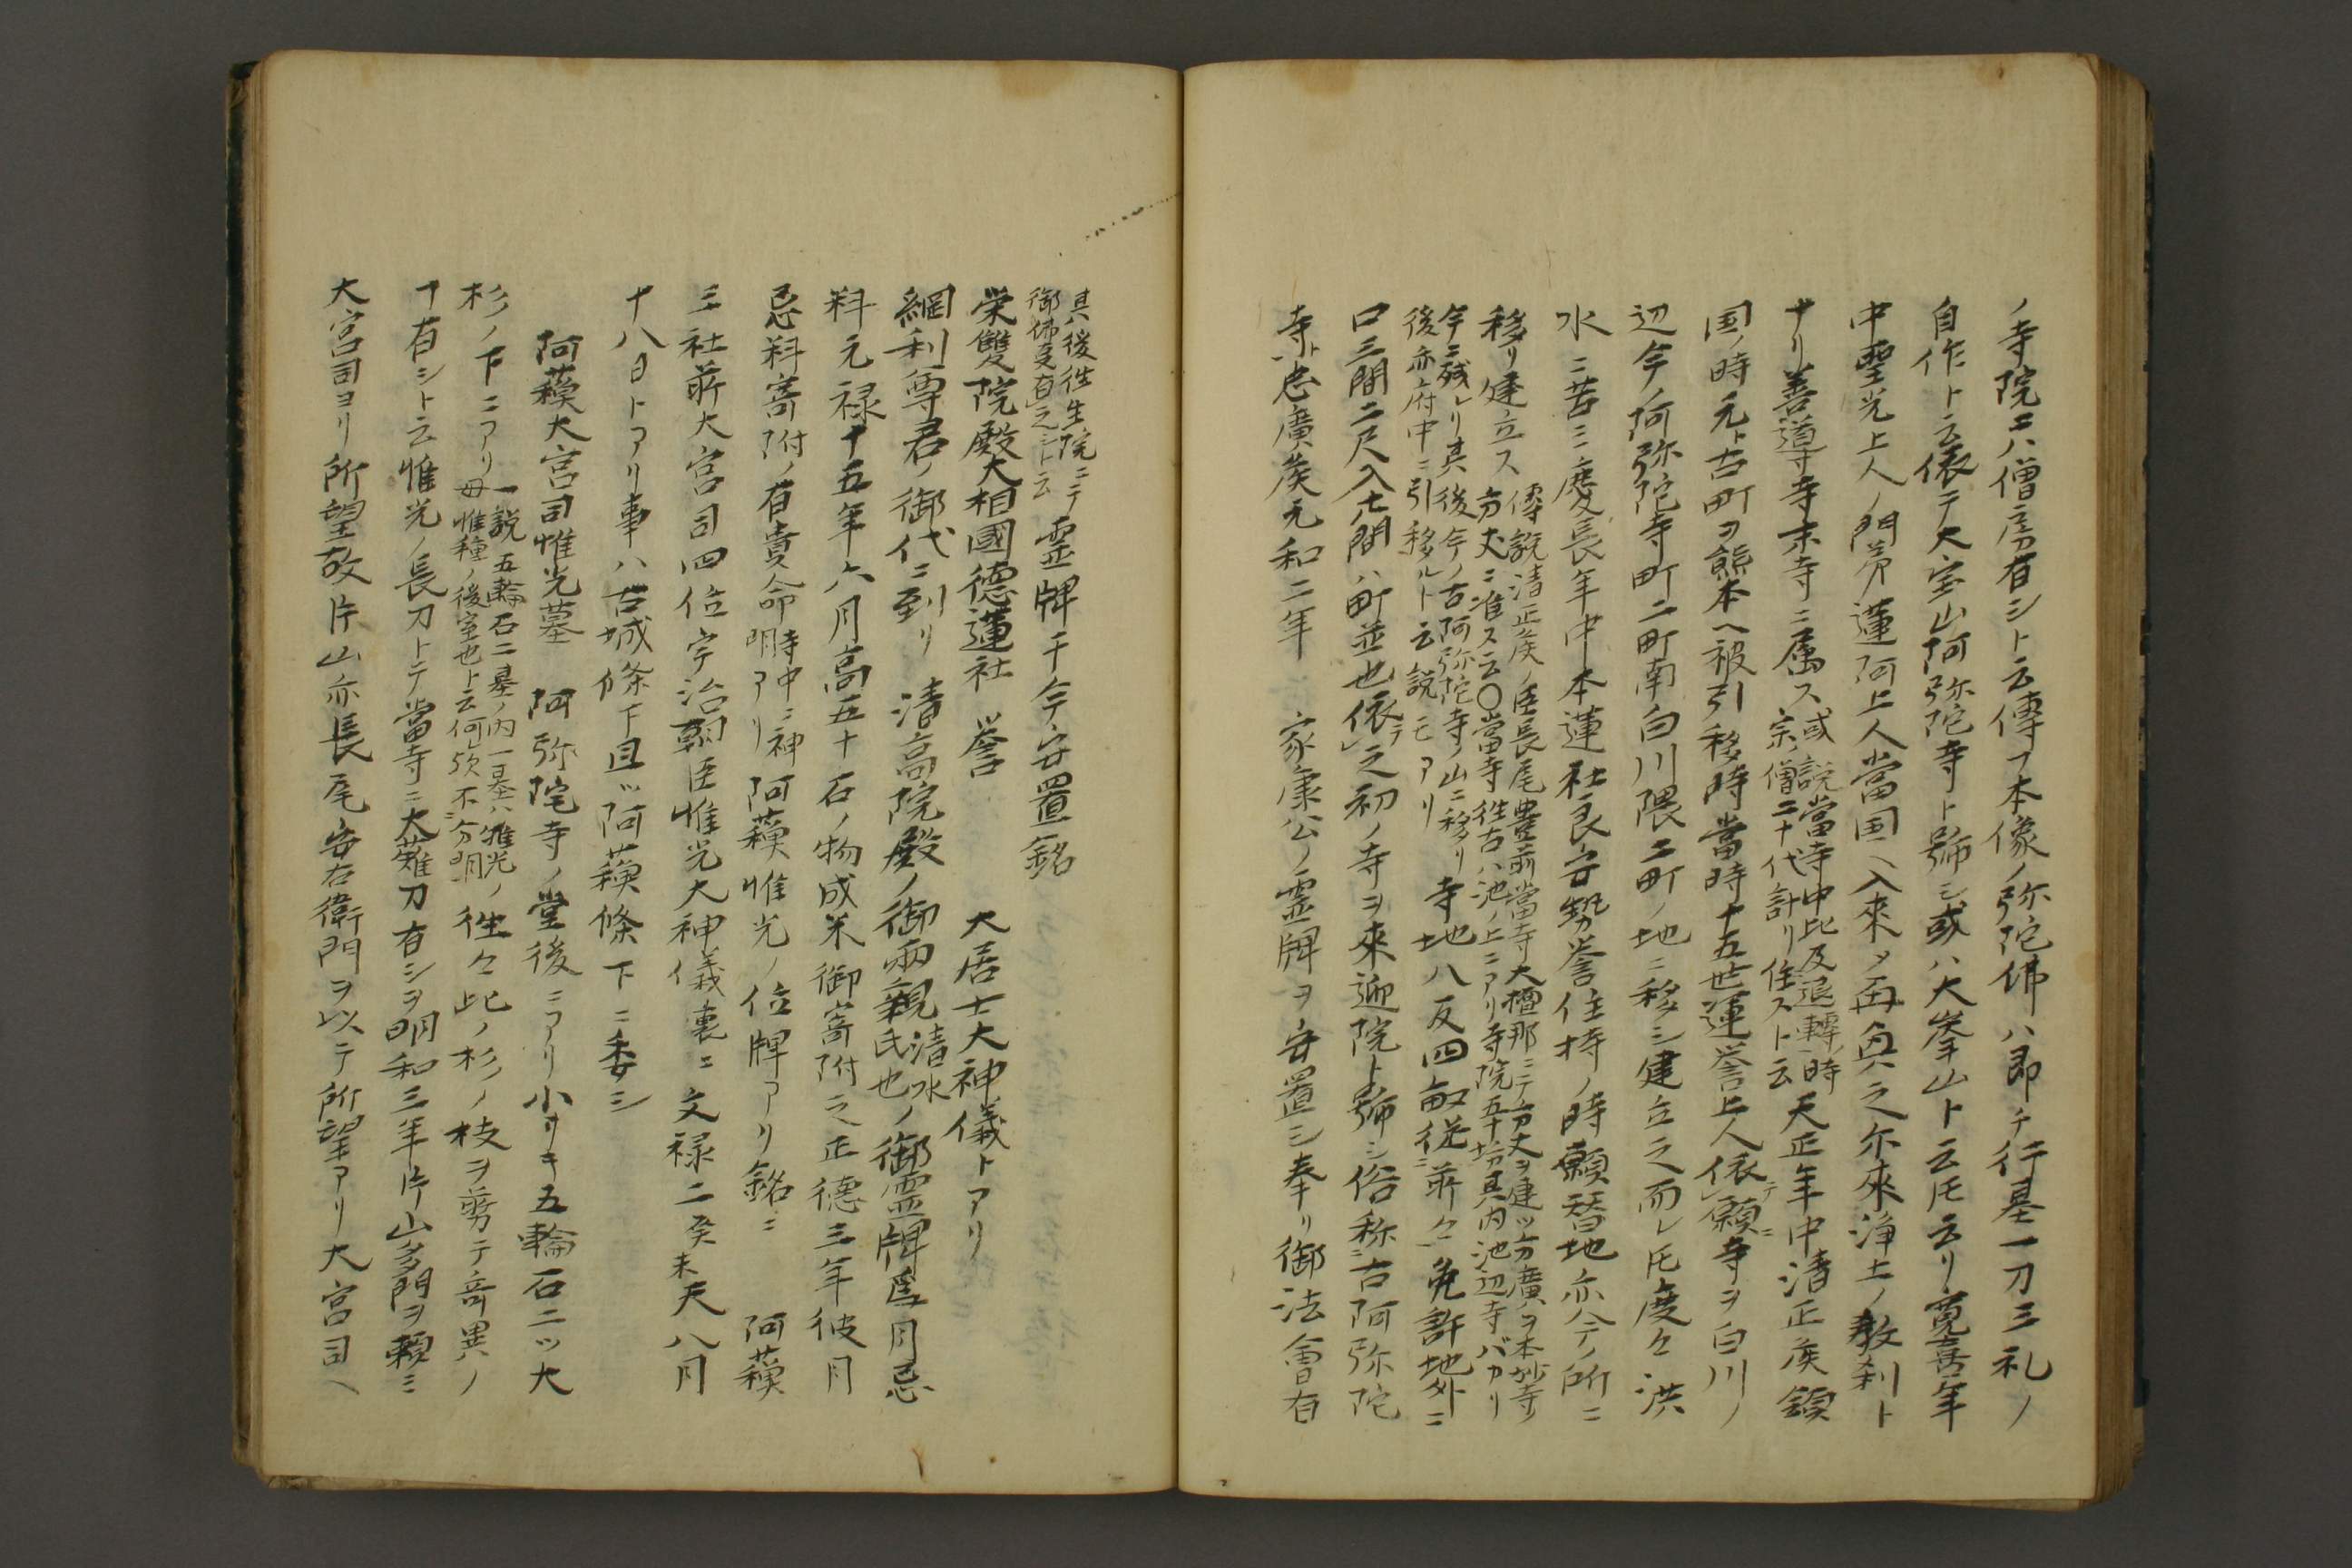 ノ寺院ニハ僧房有シト云傳フ本像ノ弥陀佛ハ即チ行基一刀三礼ノ
自作ト云依テ大宝山阿弥陀寺ト號シ或ハ大峯山ト云氏云リ寛喜年
中聖光上人ノ門弟蓮阿上人當国ヘ入來メ再興之尓來浄土ノ教刹ト
ナリ善導寺末寺ニ属ス
或説當寺中比及退轉ノ時
宗ノ僧二十代計リ住ストス云
天正年中清正矦領
国ノ時元ト古町ヲ熊本ヘ被引移時當時十五世運誉上人依テ願ニ寺ヲ白川ノ
辺今ノ阿弥陀寺町二町南白川隈二町ノ地ニ移シ建立之而レ氏度々洪
水ニ苦ミ慶長年中本蓮社良安勢誉住持ノ時願替地亦今ノ所ニ
移リ建立ス
傳説清正矦ノ臣長尾豊前當寺大檀那ニテ方丈ヲ建ツ方廣ハヲ本妙寺ノ
方丈ニ准ス云〇當寺往古ハ池ノ上ニアリ寺院五十坊其内池辺寺バカリ
今ニ残レリ其後今ノ古阿弥陀寺ノ山ニ移リ
後亦府中ニ引移ルト云説モアリ
寺地八反四畝従前々免許地外ニ
口三間二尺入七間ハ町並也依テ之初ノ寺ヲ來迎院ト號シ俗称ニ古阿弥陀
寺ト忠廣矦元和二年　家康公ノ霊牌ヲ安置シ奉リ御法會有
其後往生院ニテ
御佛叓有之シト云
霊牌于今安置銘
栄雙院殿大相國德蓮社　誉　大居士大神儀トアリ
綱利尊君ノ御代ニ到リ　清高院殿ノ御兩親
清水
氏也
ノ御霊牌爲月忌
料元禄十五年六月高五十石ノ物成米御寄附之正德三年彼月
忌料寄附ノ有貴命
時中ニ神
明アリ
阿蘓惟光ノ位牌アリ銘ニ　阿蘓
三社前大宮司四位宇治朝臣惟光大神儀裏ニ文禄二癸未天八月
十八日トアリ事ハ古城條下且ツ阿蘓條下ニ委シ
阿蘓大宮司惟光墓　阿弥陀寺ノ堂後ニアリ小サキ五輪石二ツ大
杉ノ下ニアリ
一説五輪石二基ノ内一基ハ惟光ノ
母惟種ノ後室也ト云何レ歟不分明
往々此ノ杉ノ枝ヲ剪テ奇異ノ
ヿ有シト云惟光ノ長刀トテ當寺ニ大薙刀有シヲ明和三年片山多門ヲ頼ミ
大宮司ヨリ所望故片山亦長尾安右衛門ヲ以テ所望アリ大宮司ヘ